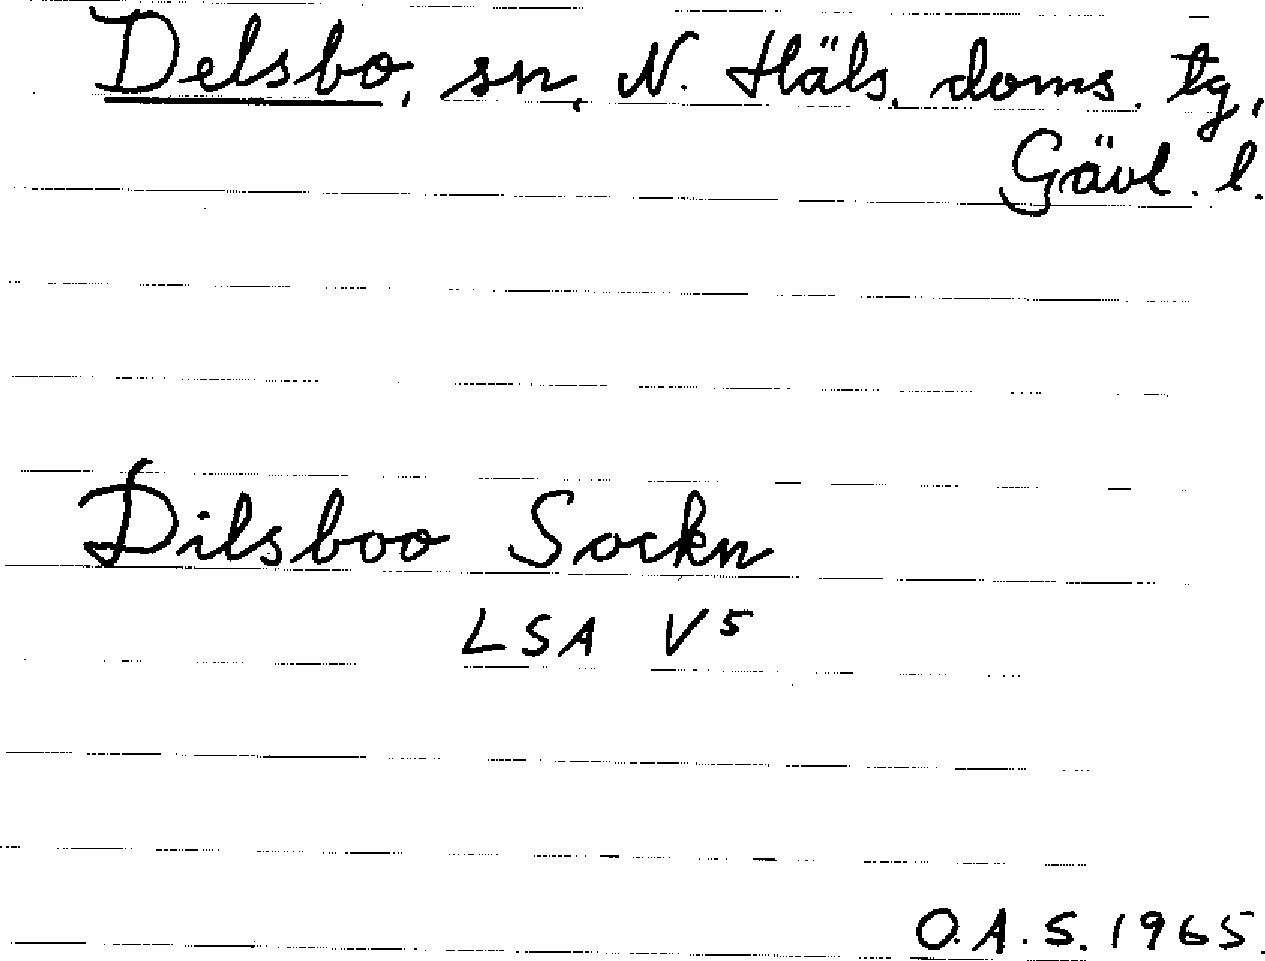 Delsbo, sn, N. Häls. doms. tg,
Gävl. l.
Dilsboo Sockn
LSA V5
O.A.S. 1965.